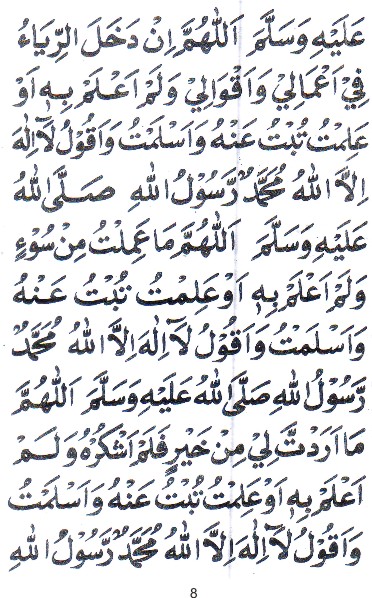 عَلَيْهِ وَسَلَّمَ اَللّٰهُمَّ اِنْ دَخَلَ الرِّيَاءُ
فِيْ اَعْمَالِيْ وَاَقْوَالِيْ وَلَمْ اَعْلَمْ بِهٖ اَوْ
عَلِمْتُ تُبْتُ عَنْهُ وَاَسْلَمْتُ وَاَقُوْلُ لَآ اِلٰهَ
اِلَّا اللهُ مُحَمَّدٌ رَّسُوْلُ اللهِ صَلَّى اللهُ
عَلَيْهِ وَسَلَّمَ اَللّٰهُمَّ مَا عَمِلْتُ مِنْ سُوْءٍ
وَلَمْ اَعْلَمْ بِهٖ اَوْ عَلِمْتُ تُبْتُ عَنْهُ
وَاَسْلَمْتُ وَاَقُوْلُ لَآ اِلٰهَ اِلَّا اللهُ مُحَمَّدٌ
رَّسُوْلُ اللهِ صَلَّى اللهُ عَلَيْهِ وَسَلَّمَ اَللّٰهُمَّ
مَا اَرَدْتَّ لِيْ مِنْ خَيْرٍ فَلَمْ اَشْكُرْهُ وَلَمْ
اَعْلَمْ بِهٖ اَوْ عَلِمْتُ تُبْتُ عَنْهُ وَاَسْلَمْتُ
وَاَقُوْلُ لَآ اِلٰهَ اِلَّا اللهُ مُحَمَّدٌ رَّسُوْلُ اللهِ
8